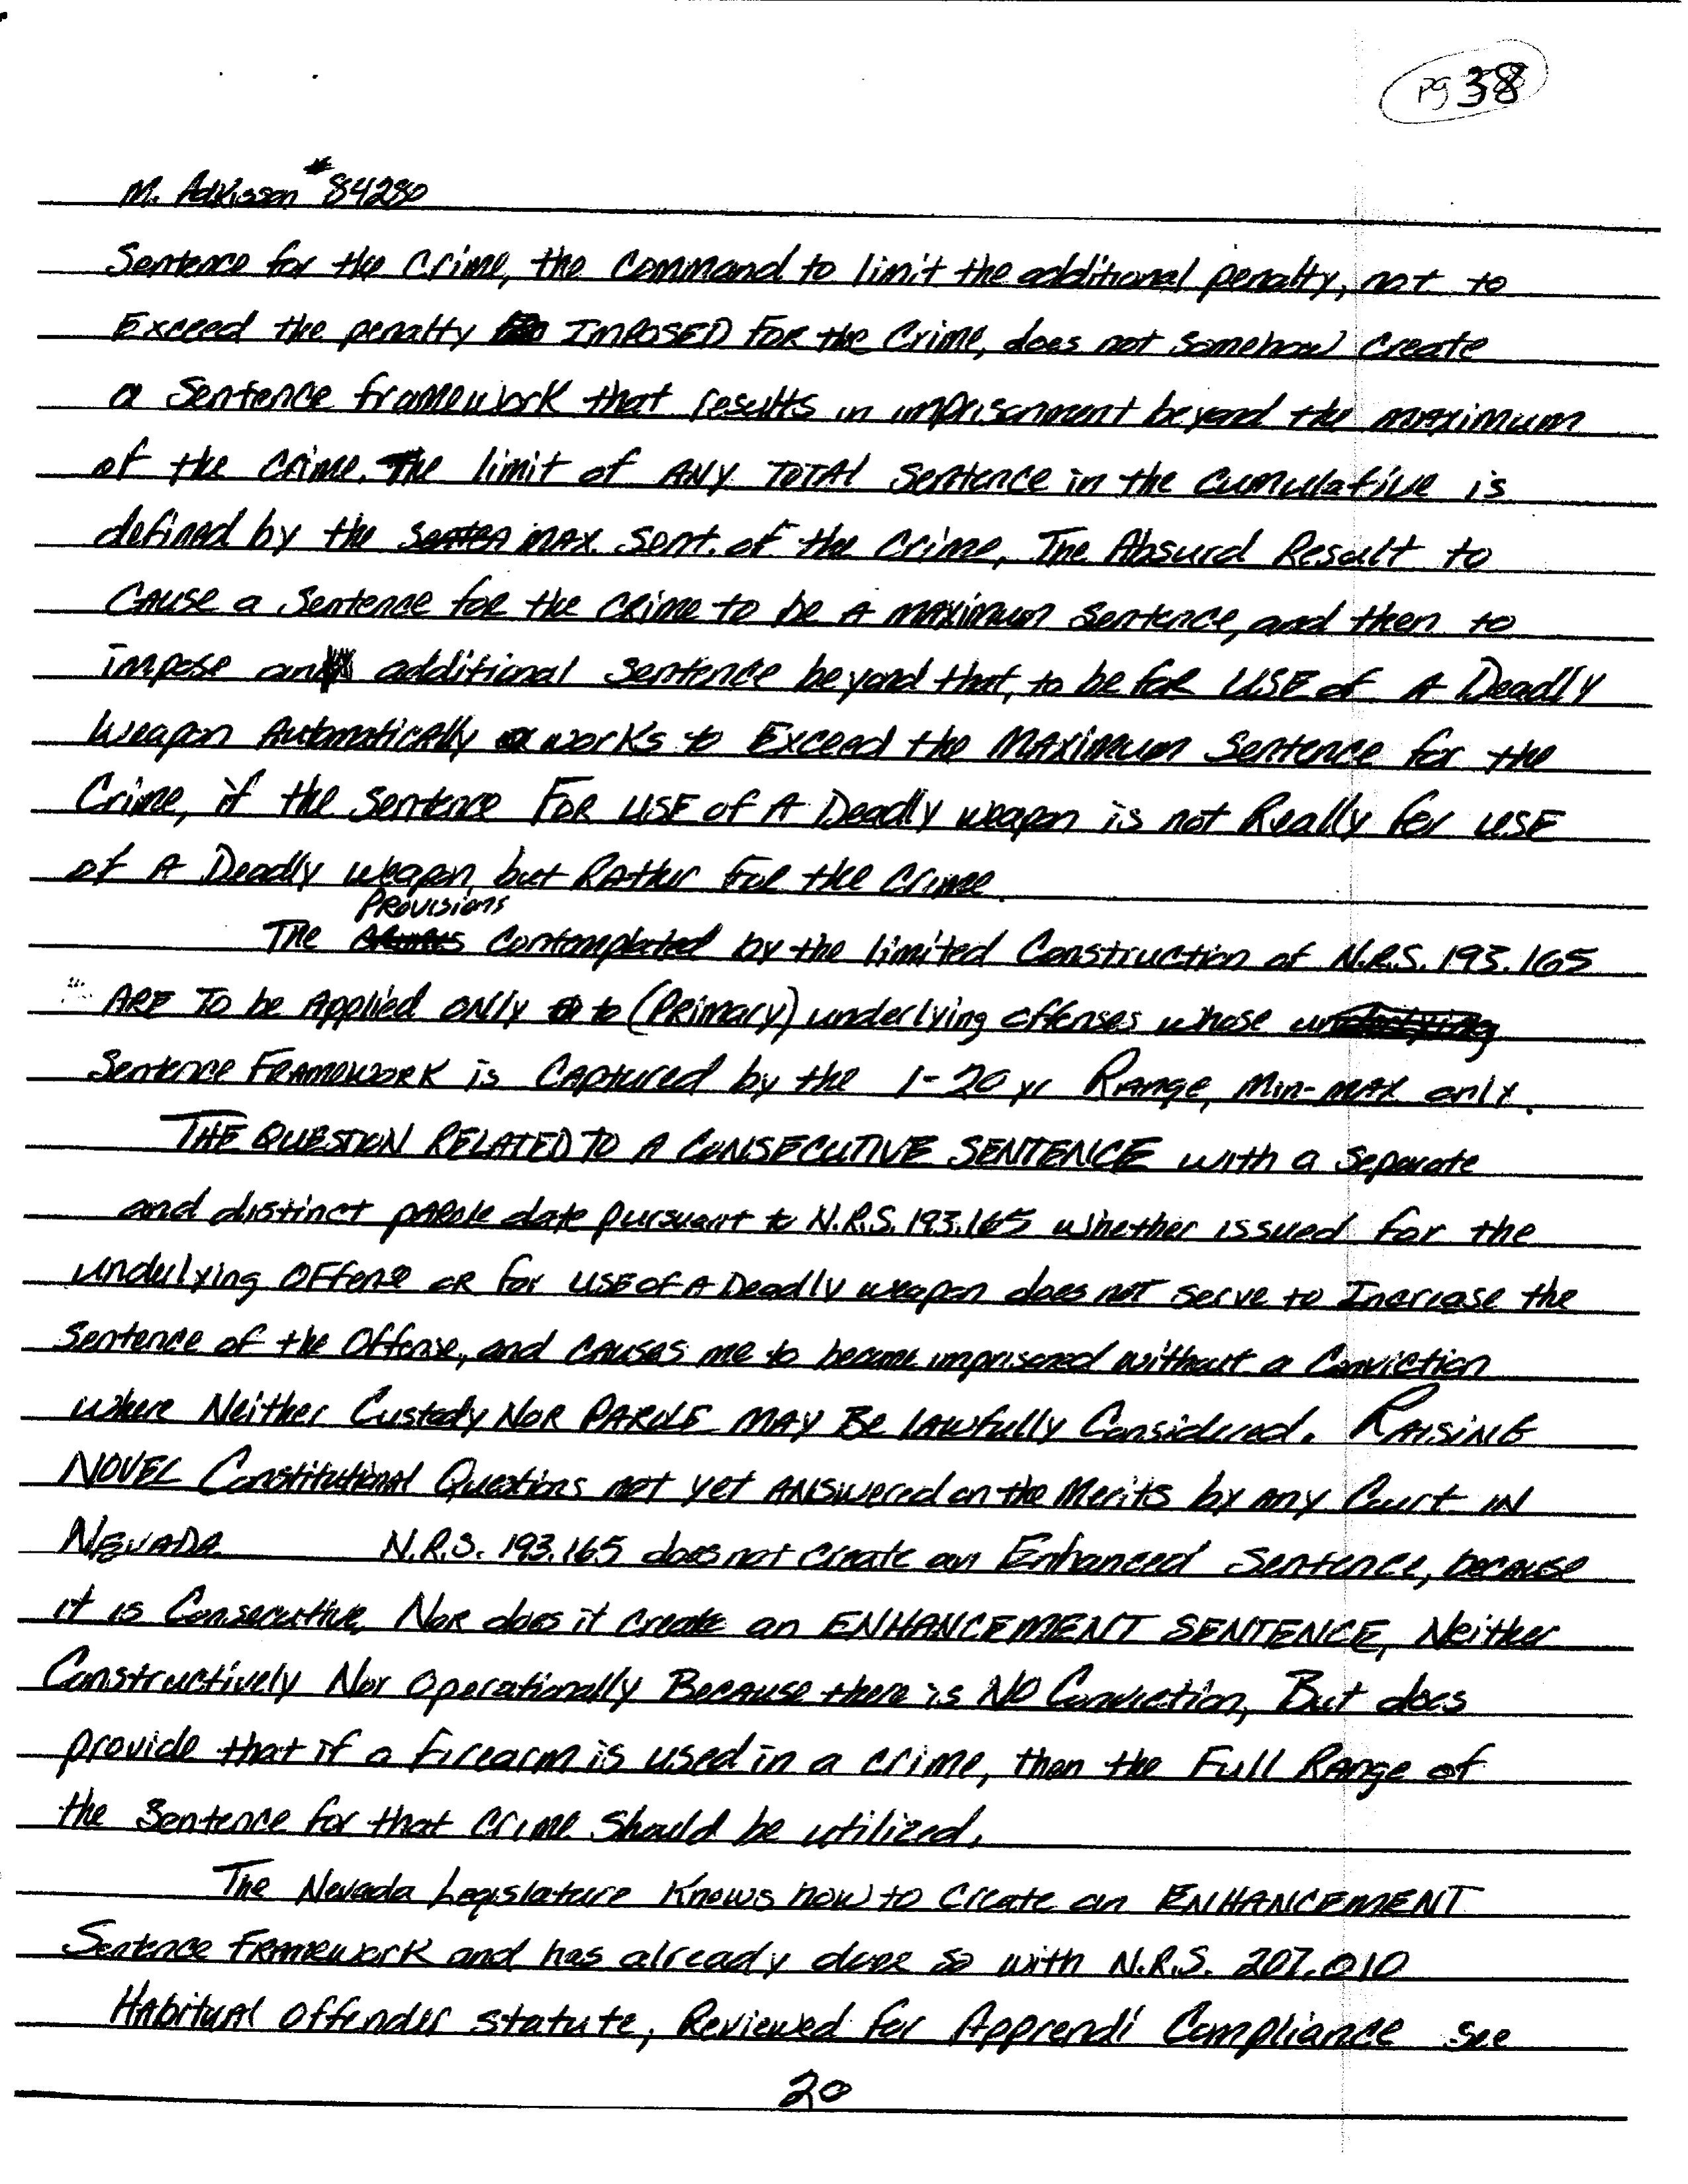 Pg 38
M. Adkisson #84280
Sentence for the Crime, the Command to limit the additional penalty, not to
Exceed the penalty IMPOSED FOR the Crime, does not somehow create
a Sentence framework that results in imprisonment beyond the maximum
of the Crime. The limit of ANY TOTAL Sentence in the cumulative is
defined by the MAX. Sent. of the Crime, The Absurd Result to
CAUSE a Sentence for the CRIME to be A MAXIMUM Sentence, and then to
impose an additional Sentence beyond that, to be for USE of A Deadly
Weapon Automatically works to Exceed the MAXIMUM Sentence for the
Crime, if the Sentence FOR USE of A Deadly weapon is not Really for USE
of A Deadly weapon, but RATHER FOR the Crime.
The PROVISIONS Contemplated by the limited Construction of N.R.S. 193.165
ARE To be Applied ONLY to (PRimary) underlying offenses whose
Sentence FRAMEWORK is CAPTURED by the 1-20 yr RANGE, Min-MAX only.
THE QUESTION RELATED TO A CONSECUTIVE SENTENCE with a separate
and distinct PAROLE date pursuant to N.R.S. 193.165 whether issued for the
underlying OFFENSE OR for USE OF A Deadly weapon does NOT serve to Increase the
Sentence of the Offense, and CAUSES me to become imprisoned without a Conviction
where Neither Custody NOR PAROLE MAY BE LAWfully Considered. RAISING
NOVEL Constitutional Questions not yet ANSWERED on the Merits by any Court IN
NEVADA. N.R.S. 193.165 does not create an Enhanced Sentence, because
it is Consecutive, NOR does it create an ENHANCEMENT SENTENCE, Neither
Constructively Nor Operationally BECAUSE there is NO Conviction, But does
provide that if a firearm is used in a crime, then the Full RANGE of
the Sentence for that Crime should be utilized.
The Nevada Legislature Knows how to Create an ENHANCEMENT
Sentence FRAMEWORK and has already done so with N.R.S. 207.010
HABITUAL Offender statute, Reviewed for Apprendi Compliance see
20